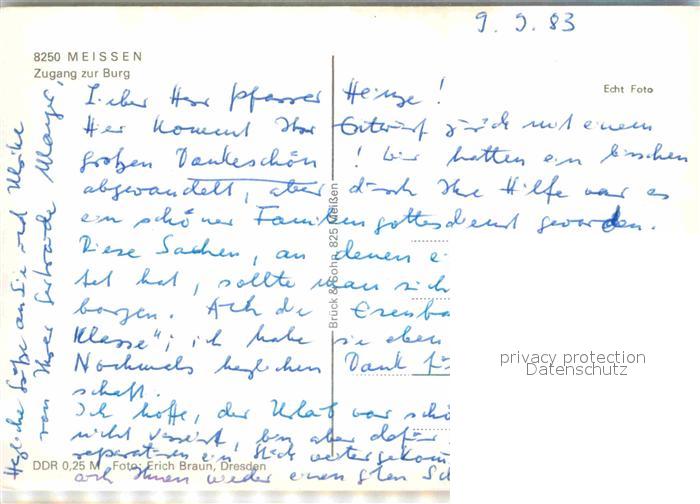 9. 9. 83
8250 MEISSEN
Zugang zur Burg
Echt Foto
Lieber Herr Pfarrer Heinze!
Hier kommt Ihr Entwurf zurück mit einem
großen Dankeschön! Wir hatten ein bisschen
abgewandelt, aber durch Ihre Hilfe war es
ein schöner Familiengottesdienst geworden.
Diese Sachen, an denen
hat, sollte man sich
borgen. Auch die
Klasse"; ich habe sie eben
Nochmals herzlichen Dank für
schaft.
Ich hoffe, der Urlaub war schö
nicht verreist, bin aber dafür
ein Stück weitergekom
auch Ihnen wieder einen guten
Herzliche Grüße an Sie und Ulrike
von Ihrer
Brück & Sohn, 825 Meißen
DDR 0,25 M Foto: Erich Braun, Dresden
privacy protection
Datenschutz